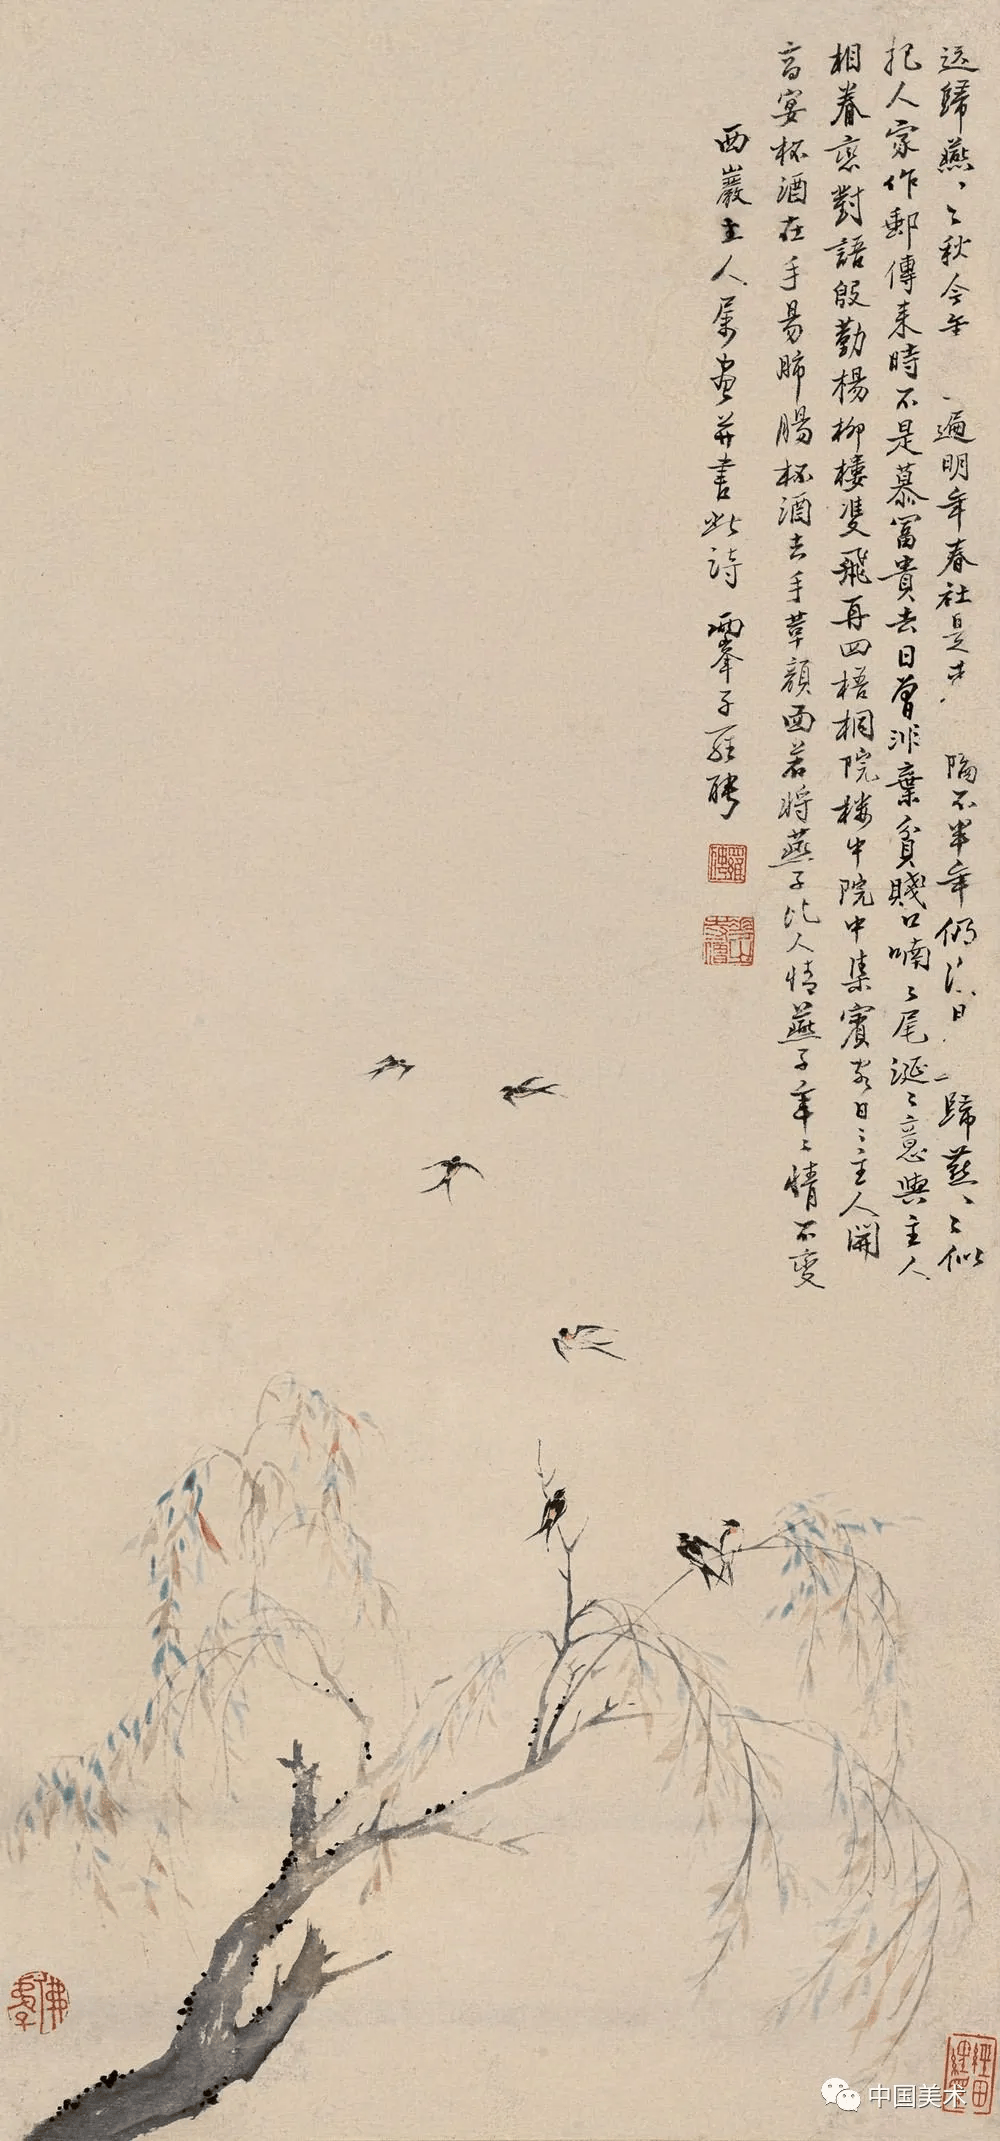 送歸燕〻〻秋今年一遍明年春社是 隔不半年仍 日 一歸燕〻〻似
把人家作郵傳来時不是慕冨貴去日曾非棄貧賤口喃〻尾涎〻意與主人
相眷戀對語殷勤楊柳樓雙飛再四梧桐院樓中院中集賓客日〻主人開
高宴杯酒在手易肺腸杯酒去手革顔面若將燕子比人情燕子年〻情不變
西巖主人属畫并書此詩 兩峯子羅聘
中国美术